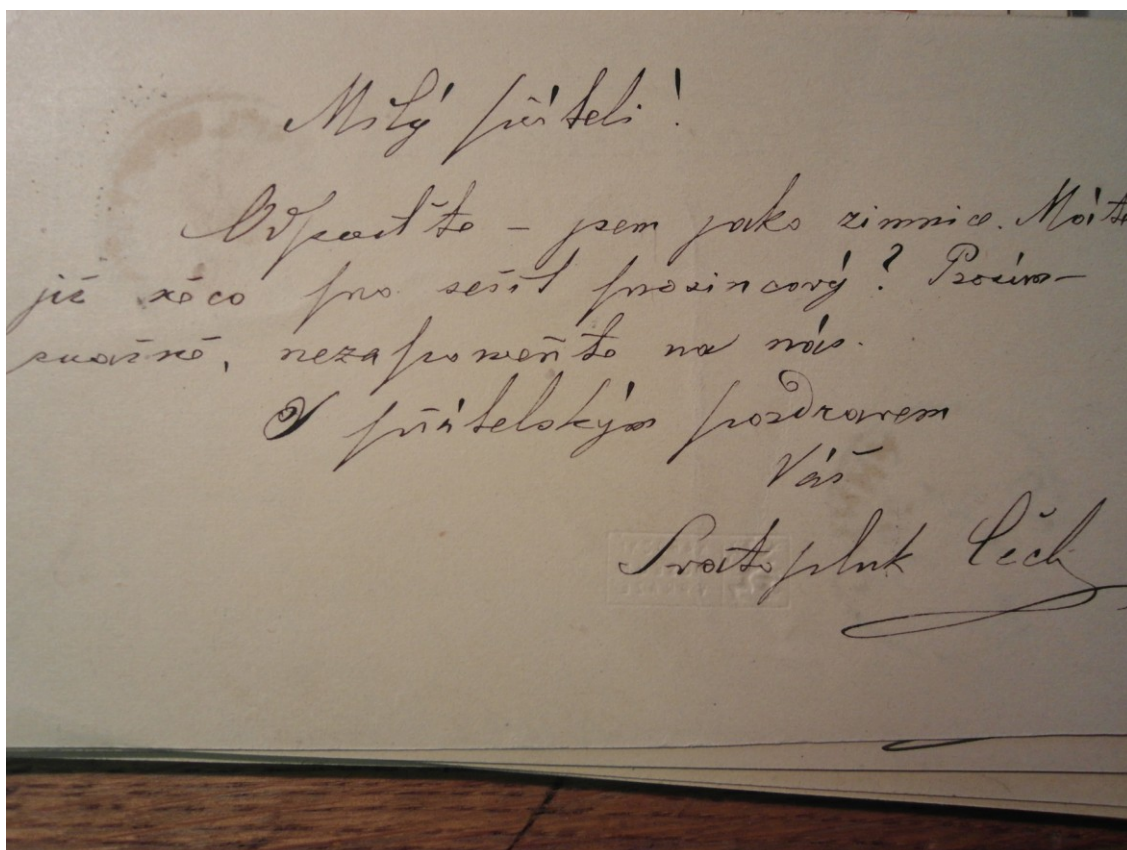 Milý příteli!
Odpusťte – jsem jako zimnice. Máte
již něco pro sešit prosincový? Prosím
snažně, nezapomeňte na nás.
S přátelským pozdravem
Váš
Svatopluk Čech